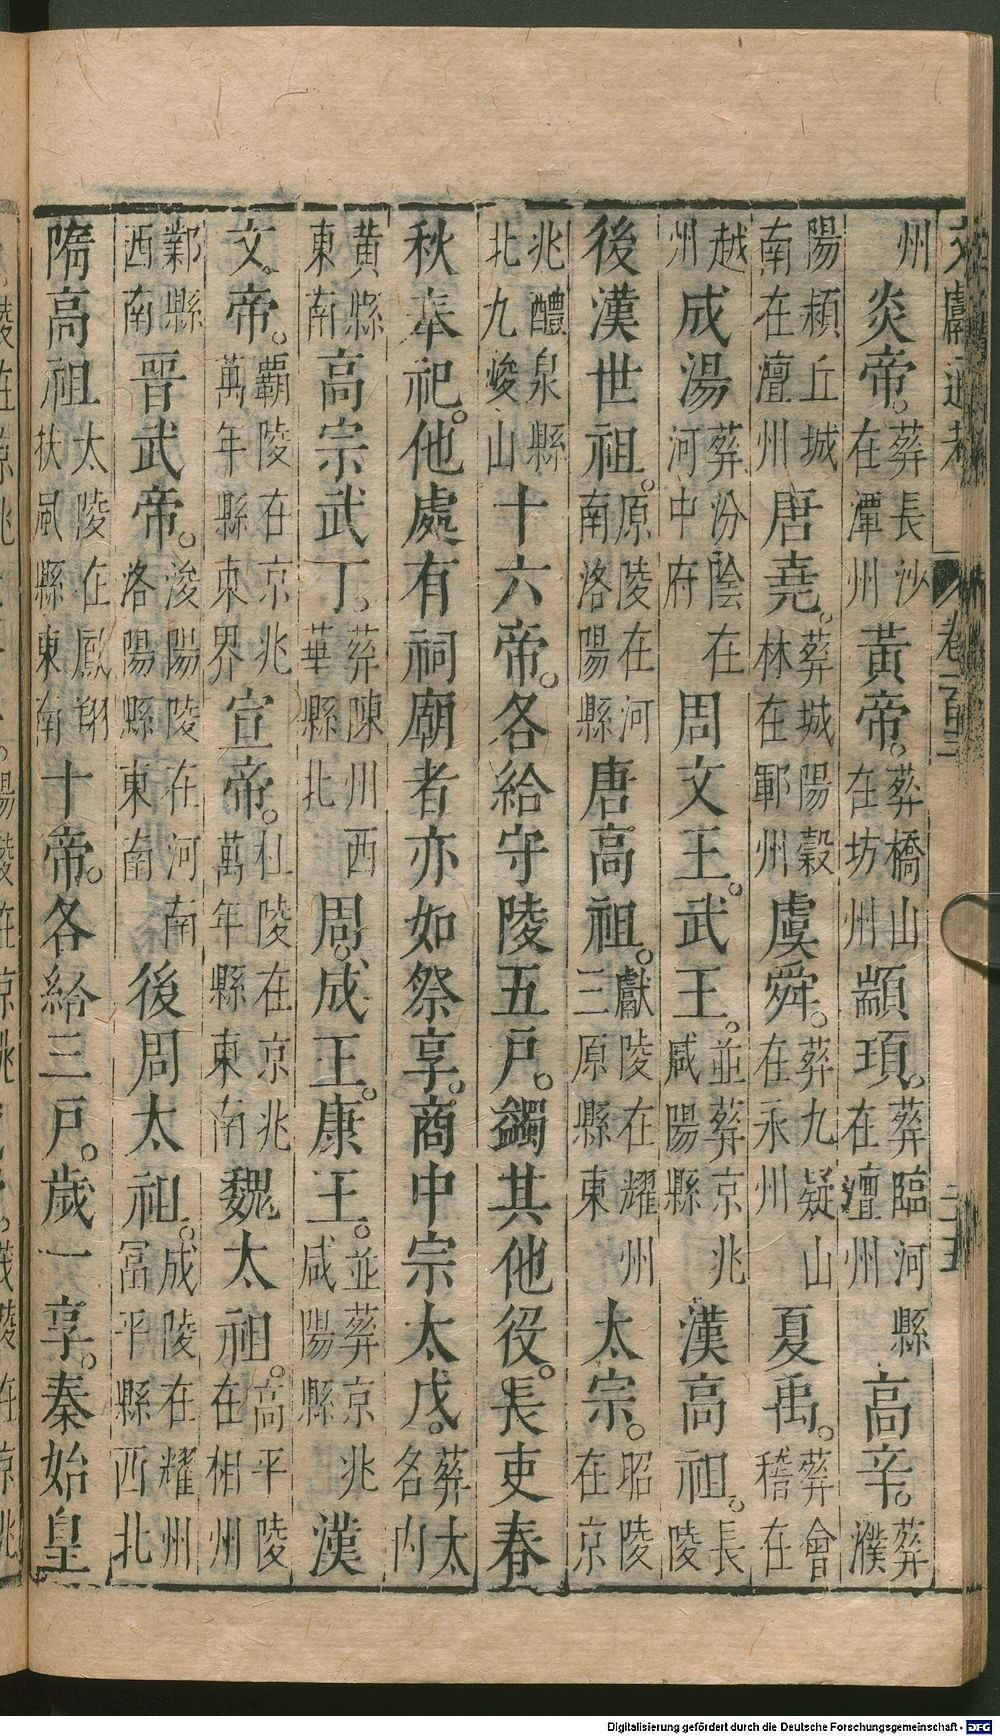 文獻通考 卷一百三 二五
州炎帝葬長沙在潭州黃帝葬橋山在坊州顓頊葬臨河縣在澶州高辛葬濮
陽頴丘城南在澶州唐堯葬城陽穀林在鄆州虞舜葬九疑山在永州夏禹葬會稽在
越州成湯葬汾陰在河中府周文王武王並葬京兆咸陽縣漢高祖長陵
後漢世祖原陵在河南洛陽縣唐高祖獻陵在耀州三原縣東太宗昭陵在京
兆醴泉縣北九嵕山十六帝各給守陵五戶蠲其他役長吏春
秋奉祀他處有祠廟者亦如祭享商中宗太戊葬太名內
黃縣東南高宗武丁葬陳州西華縣北周成王康王並葬京兆咸陽縣漢
文帝霸陵在京兆萬年縣東界宣帝杜陵在京兆萬年縣東南魏太祖高平陵在相州
鄴縣西南晉武帝浚陽陵在河南洛陽縣東南後周太祖成陵在耀州富平縣西北
隋高祖太陵在鳳翔扶風縣東南十帝各給三戶歲一享秦始皇
Digitalisierung gefördert durch die Deutsche Forschungsgemeinschaft - DFG